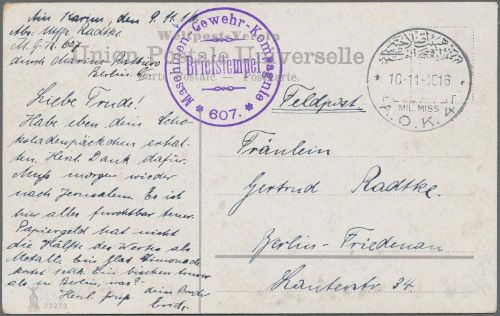 Ain Karim, den 9.11.16
Abs. Mgfr. Radtke
M.G.K. 607
durch Marine Postbüro
Berlin
Weltpostverein
Union Postale Universelle
Carte postale Postkarte.
Maschinen-Gewehr-Kompagnie
Briefstempel
* 607. *
* 10-11-1916 *
FELDPOST
MIL. MISS
A.O.K. 4
Feldpost.
Liebe Trude!
Habe eben dein Scho-
koladenpäckchen erhal-
ten. Herzl. Dank dafür.
Muß morgen wieder
nach Jerusalem. Es ist
hier alles furchtbar teuer
Papiergeld hat nicht
die Hälfte des Wertes als
Metall. Ein Glas Limonade
kostet Ein bischen teurer
als in Berlin, was?
Herzl. Gruß dein Bruder
Erich.
Fräulein
Gertrud Radtke.
Berlin-Friedenau
Lauterstr. 34.
23273